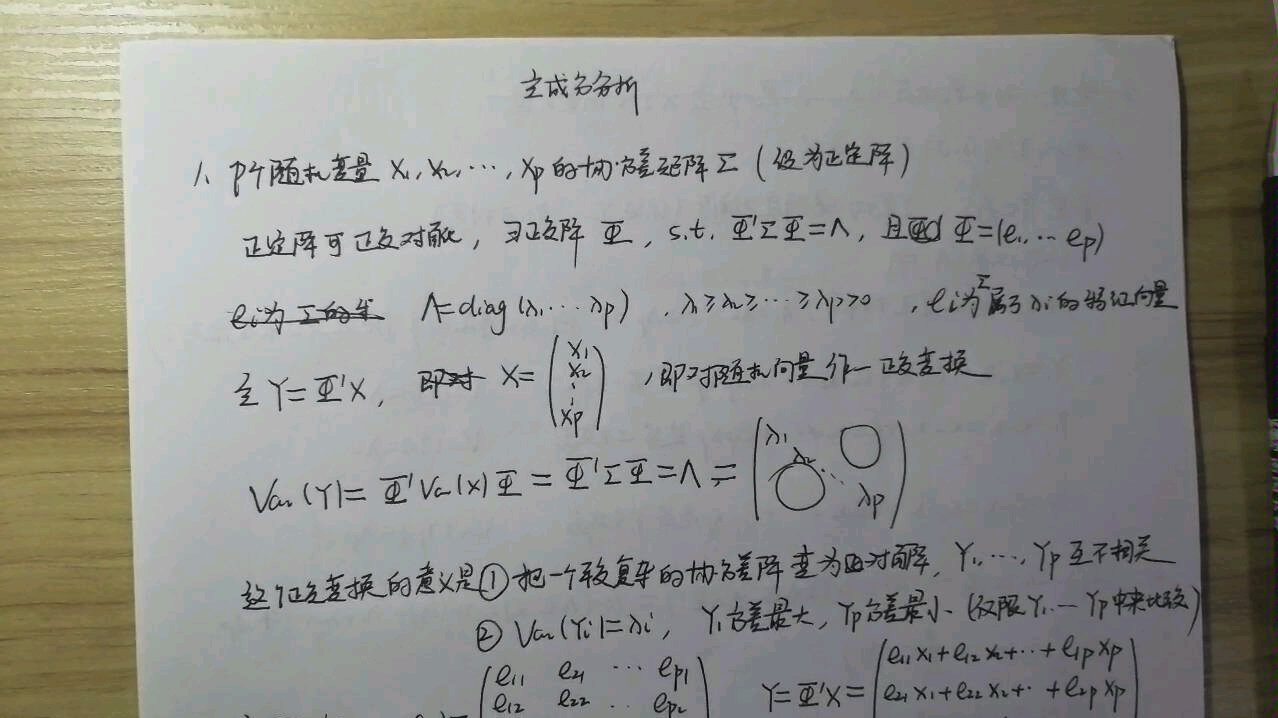 主成分分析
1、p个随机变量 X₁, X₂, ⋯, Xp 的协方差矩阵 Σ (设为正定阵)
正定阵可正交对角化, ∃正交阵 Φ, s.t. Φ'ΣΦ=Λ, 且 Φ=(e₁, ⋯ ep)
Λ=diag(λ₁ ⋯ λp), λ₁≥λ₂≥⋯≥λp>0, ei为Σ属于λi的特征向量
Y=Φ'X, X=(X₁ X₂ ⋮ Xp), 即对随机向量作一正交变换
Var(Y)=Φ'Var(X)Φ=Φ'ΣΦ=Λ=(λ₁ λ₂ ⋱ λp)
这个正交变换的意义是①把一个较复杂的协方差阵变为对角阵, Y₁, ⋯, Yp 互不相关
② Var(Yi)=λi, Y₁方差最大, Yp方差最小 (仅限Y₁ ⋯ Yp中来比较)
e₁₁ e₂₁ ⋯ ep₁
e₁₂ e₂₂ ‥ ep₂
Y=Φ'X= e₁₁X₁+e₁₂X₂+⋯+e₁pXp
e₂₁X₁+e₂₂X₂+⋯+e₂pXp